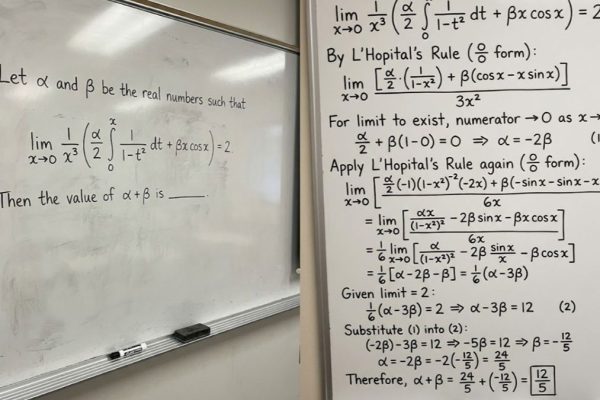 Let α and β be the real numbers such that
lim x→0 1/x³ (α/2 ∫₀ˣ 1/(1-t²) dt + βx cos x) = 2.
Then the value of α+β is ____.
lim x→0 1/x³ (α/2 ∫₀ 1/(1-t²) dt + βx cos x) = 2
By L'Hopital's Rule (0/0 form):
lim x→0 [α/2 · (1/(1-x²)) + β(cos x - x sin x)] / 3x²
For limit to exist, numerator → 0 as x→
α/2 + β(1-0) = 0 ⇒ α = -2β (1
Apply L'Hopital's Rule again (0/0 form):
lim x→0 [α/2 (-1)(1-x²)⁻²(-2x) + β(-sin x - sin x - x / 6x
= lim x→0 [αx/(1-x²)² - 2β sin x - βx cos x] / 6x
= 1/6 lim x→0 [α/(1-x²)² - 2β sin x/x - β cos x]
= 1/6 [α - 2β - β] = 1/6 (α - 3β)
Given limit = 2:
1/6 (α - 3β) = 2 ⇒ α - 3β = 12 (2)
Substitute (1) into (2):
(-2β) - 3β = 12 ⇒ -5β = 12 ⇒ β = -12/5
α = -2β = -2(-12/5) = 24/5
Therefore, α + β = 24/5 + (-12/5) = 12/5